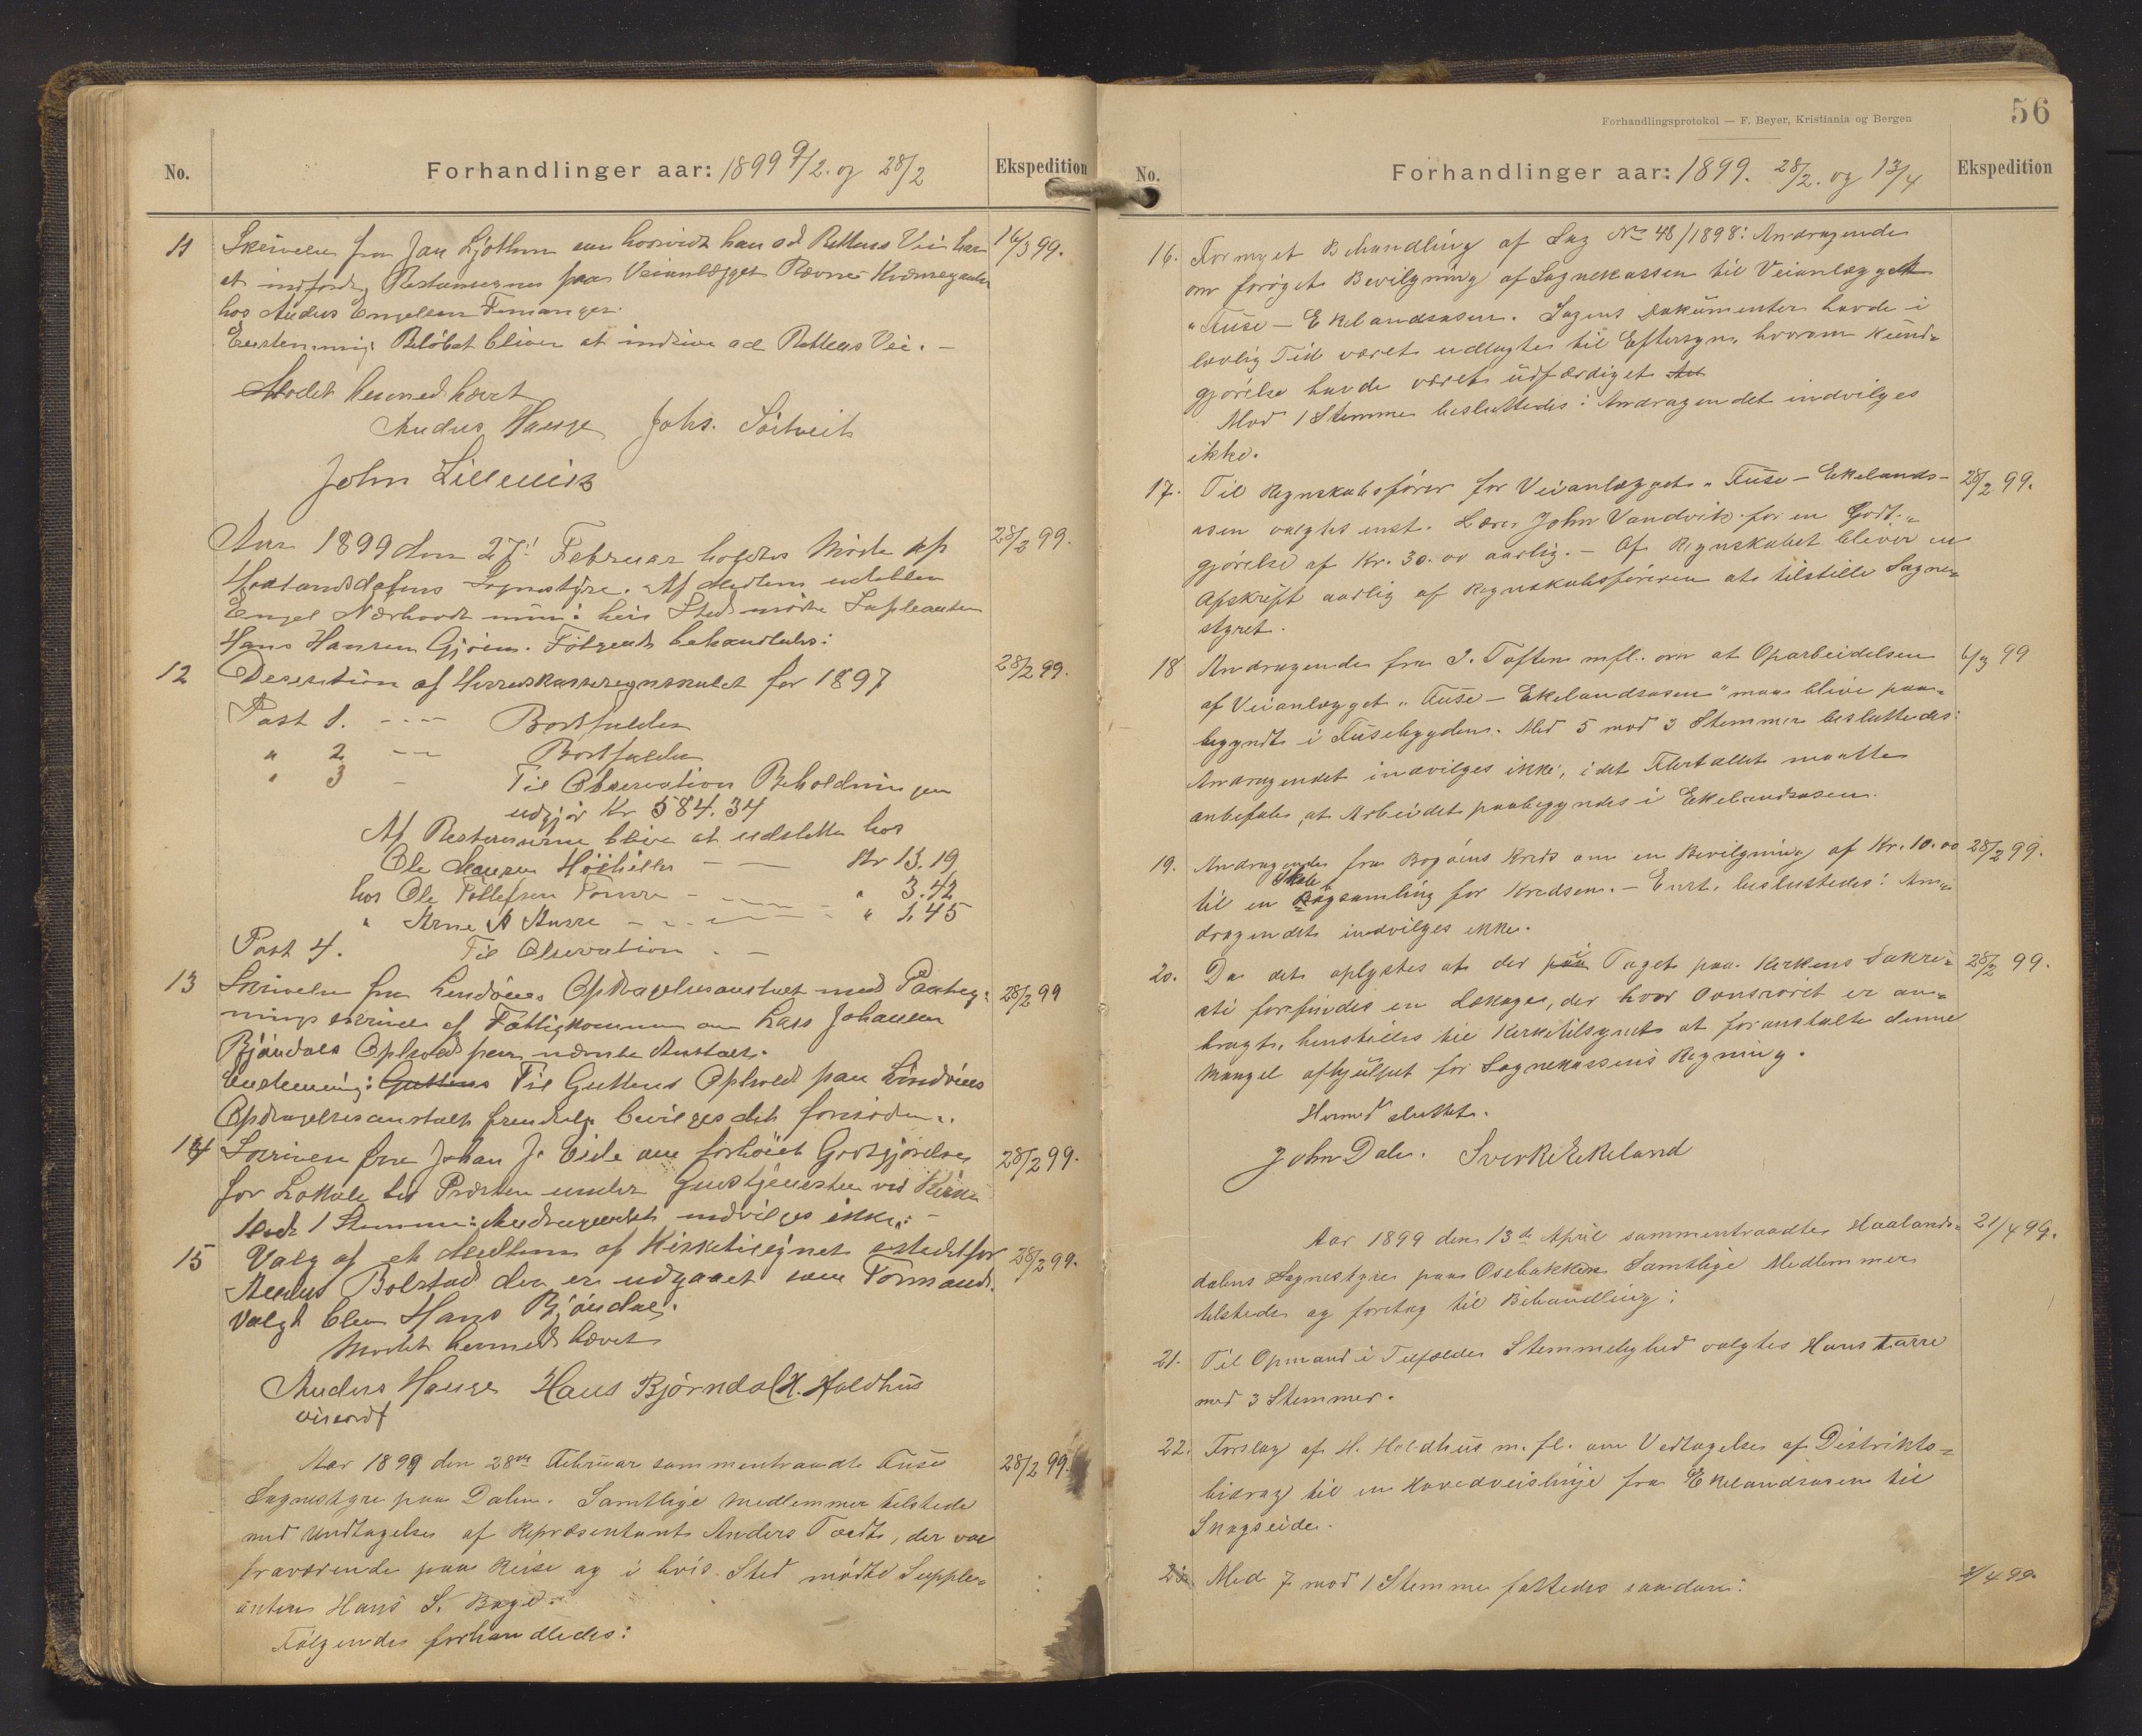 No.
Forhandlinger aar: 1899 9/2. og 28/2
Ekspedition
11 Skrivelse fra Jan Ljothun om hvorvidt han ad Rettens Vei har 16/3 99.
at indfordre Restancerne paa Veianlægget
hos Audus Engelsen Femanger.
Enstemmig: Beløbet bliver at inddrive ad Rettens Vei. –
Mødet hermed hævet
Audus Hauge Johs. Sörtveit
John Lillevik
Aar 1899 den 27! Februar holdtes Møde af 28/2 99.
Haalandsdalens Sognestyre. Af Medlem udeblev
Engel Nærhovdt i hvis Sted mødte Supleanten
Hans Hansen Gjøen. Følgende behandledes:
12 Desesition af Herredskasseregnskabet for 1897 28/2 99.
Post 1. --- Bortfalder
" 2 -- Bortfalder
" 3 - Til Observation Beholdningen
udgjør Kr 584.34
Af Restancerne bliver at udslette hos
Ole Hansen — — Kr 13.19
hos Ole Tollefsen — " 3.42
" Arne A — " 1,45
Post 4. Til Observation. –
13 Skrivelse fra Lindöens Opdragelsesanstalt med Paateg= 28/2 99
ning af Fattigkommisionen om Lars Johansen
Bjöndals Ophold paa nævnte Anstalt.
Enstemmig: Guttens Til Guttens Ophold paa Lindöens
Opdragelsesanstalt fremdeles bevilges det fornödne.
14 Skrivelse fra Johan J. Eide om forhöiet Godtgjörelse 28/2 99.
for Lokale til Præsten under Gudstjenesten ved Kirken
Mod 1 Stemme: Andragendet indvilges ikke. –
15 Valg af et Medlem af Kirketilsynet istedetfor 28/2 99.
Audus Bolstad der er udgaaet som Formand.
Valgt blev Hans Bjöndal.
Mødet hermed hævet
Audus Hauge Hans Bjørndal H. Holdhus
Aar 1899 den 28de Februar sammentraadte Fuse 28/2 99.
Sognestyre paa Dalen. Samtlige Medlemmer tilstede
med Undtagelse af Repræsentant Anders Tvedt, der var
fraværende paa Reise og i hvis Sted mødte Supple=
anten Hans S. Bøgø.
Følgende forhandledes:
Forhandlingsprotokol — F. Beyer, Kristiania og Bergen
56
No.
Forhandlinger aar: 1899. 28/2. og 13/4
Ekspedition
16. Fornyet Behandling af Sag No 48/1898: Andragende
om forøget Bevilgning af Sognekassen til Veianlægget
"Fuse – Ekelandsosen. Sagens Dokumenter havde i
lovlig Tid været udlagte til Eftersyn, hvorom Kund=
gjörelse havde været udfærdiget
Mod 1 Stemme besluttedes: Andragendet indvilges
ikke.
17. Til Regnskabsfører for Veianlægget "Fuse – Ekelands- 28/2 99.
osen valgtes enst. Lærer John Vandvik for en Godt=
gjörelse af Kr. 30.00 aarlig. – Af Regnskabet bliver en
Afskrift aarlig af Regnskabsføreren at tilstille Sogne=
styret.
18 Andragende fra I. Toften m.fl. om at Oparbeidelsen 6/3 99
af Veianlægget "Fuse – Ekelandsosen" maa blive paa=
begyndt i Fusebygden. Med 5 mod 3 Stemmer besluttedes:
Andragendet indvilges ikke, idet Flertallet maatte
anbefale, at Arbeidet paabegyndes i Ekelandsosen.
19. Andragende fra Bogöens Kreds om en Bevilgning af Kr. 10.00 28/2 99.
Skole
til en Bogsamling for Kredsen. – Enst. besluttedes: An=
dragendet indvilges ikke.
20. Da det oplystes at der paa i Taget paa Kirkens Sakri= 28/2 99.
sti forefindes en Lækage, der hvor Ovnsröret er an=
bragt, henstilles til Kirketilsynet at foranstalte denne
Mangel afhjulpet for Sognekassens Regning.
Hermed sluttet.
John Dalen. Sverke Ekeland
Aar 1899 den 13de April sammentraadte Haalands= 21/4 99.
dalens Sognestyre paa Osebakken Samtlige Medlemmer
tilstede og foretog til Behandling:
21. Til Opmand i Tilfælde Stemmelighed valgtes Hans Tarre
med 3 Stemmer.
22. Forslag af H. Holdhus m.fl. om Vedtagelse af Distrikts=
bidrag til en Hovedveislinje fra Ekelandsosen til
Skogseide.
23. Med 7 mod 1 Stemme fattedes saadan: 21/4 99.